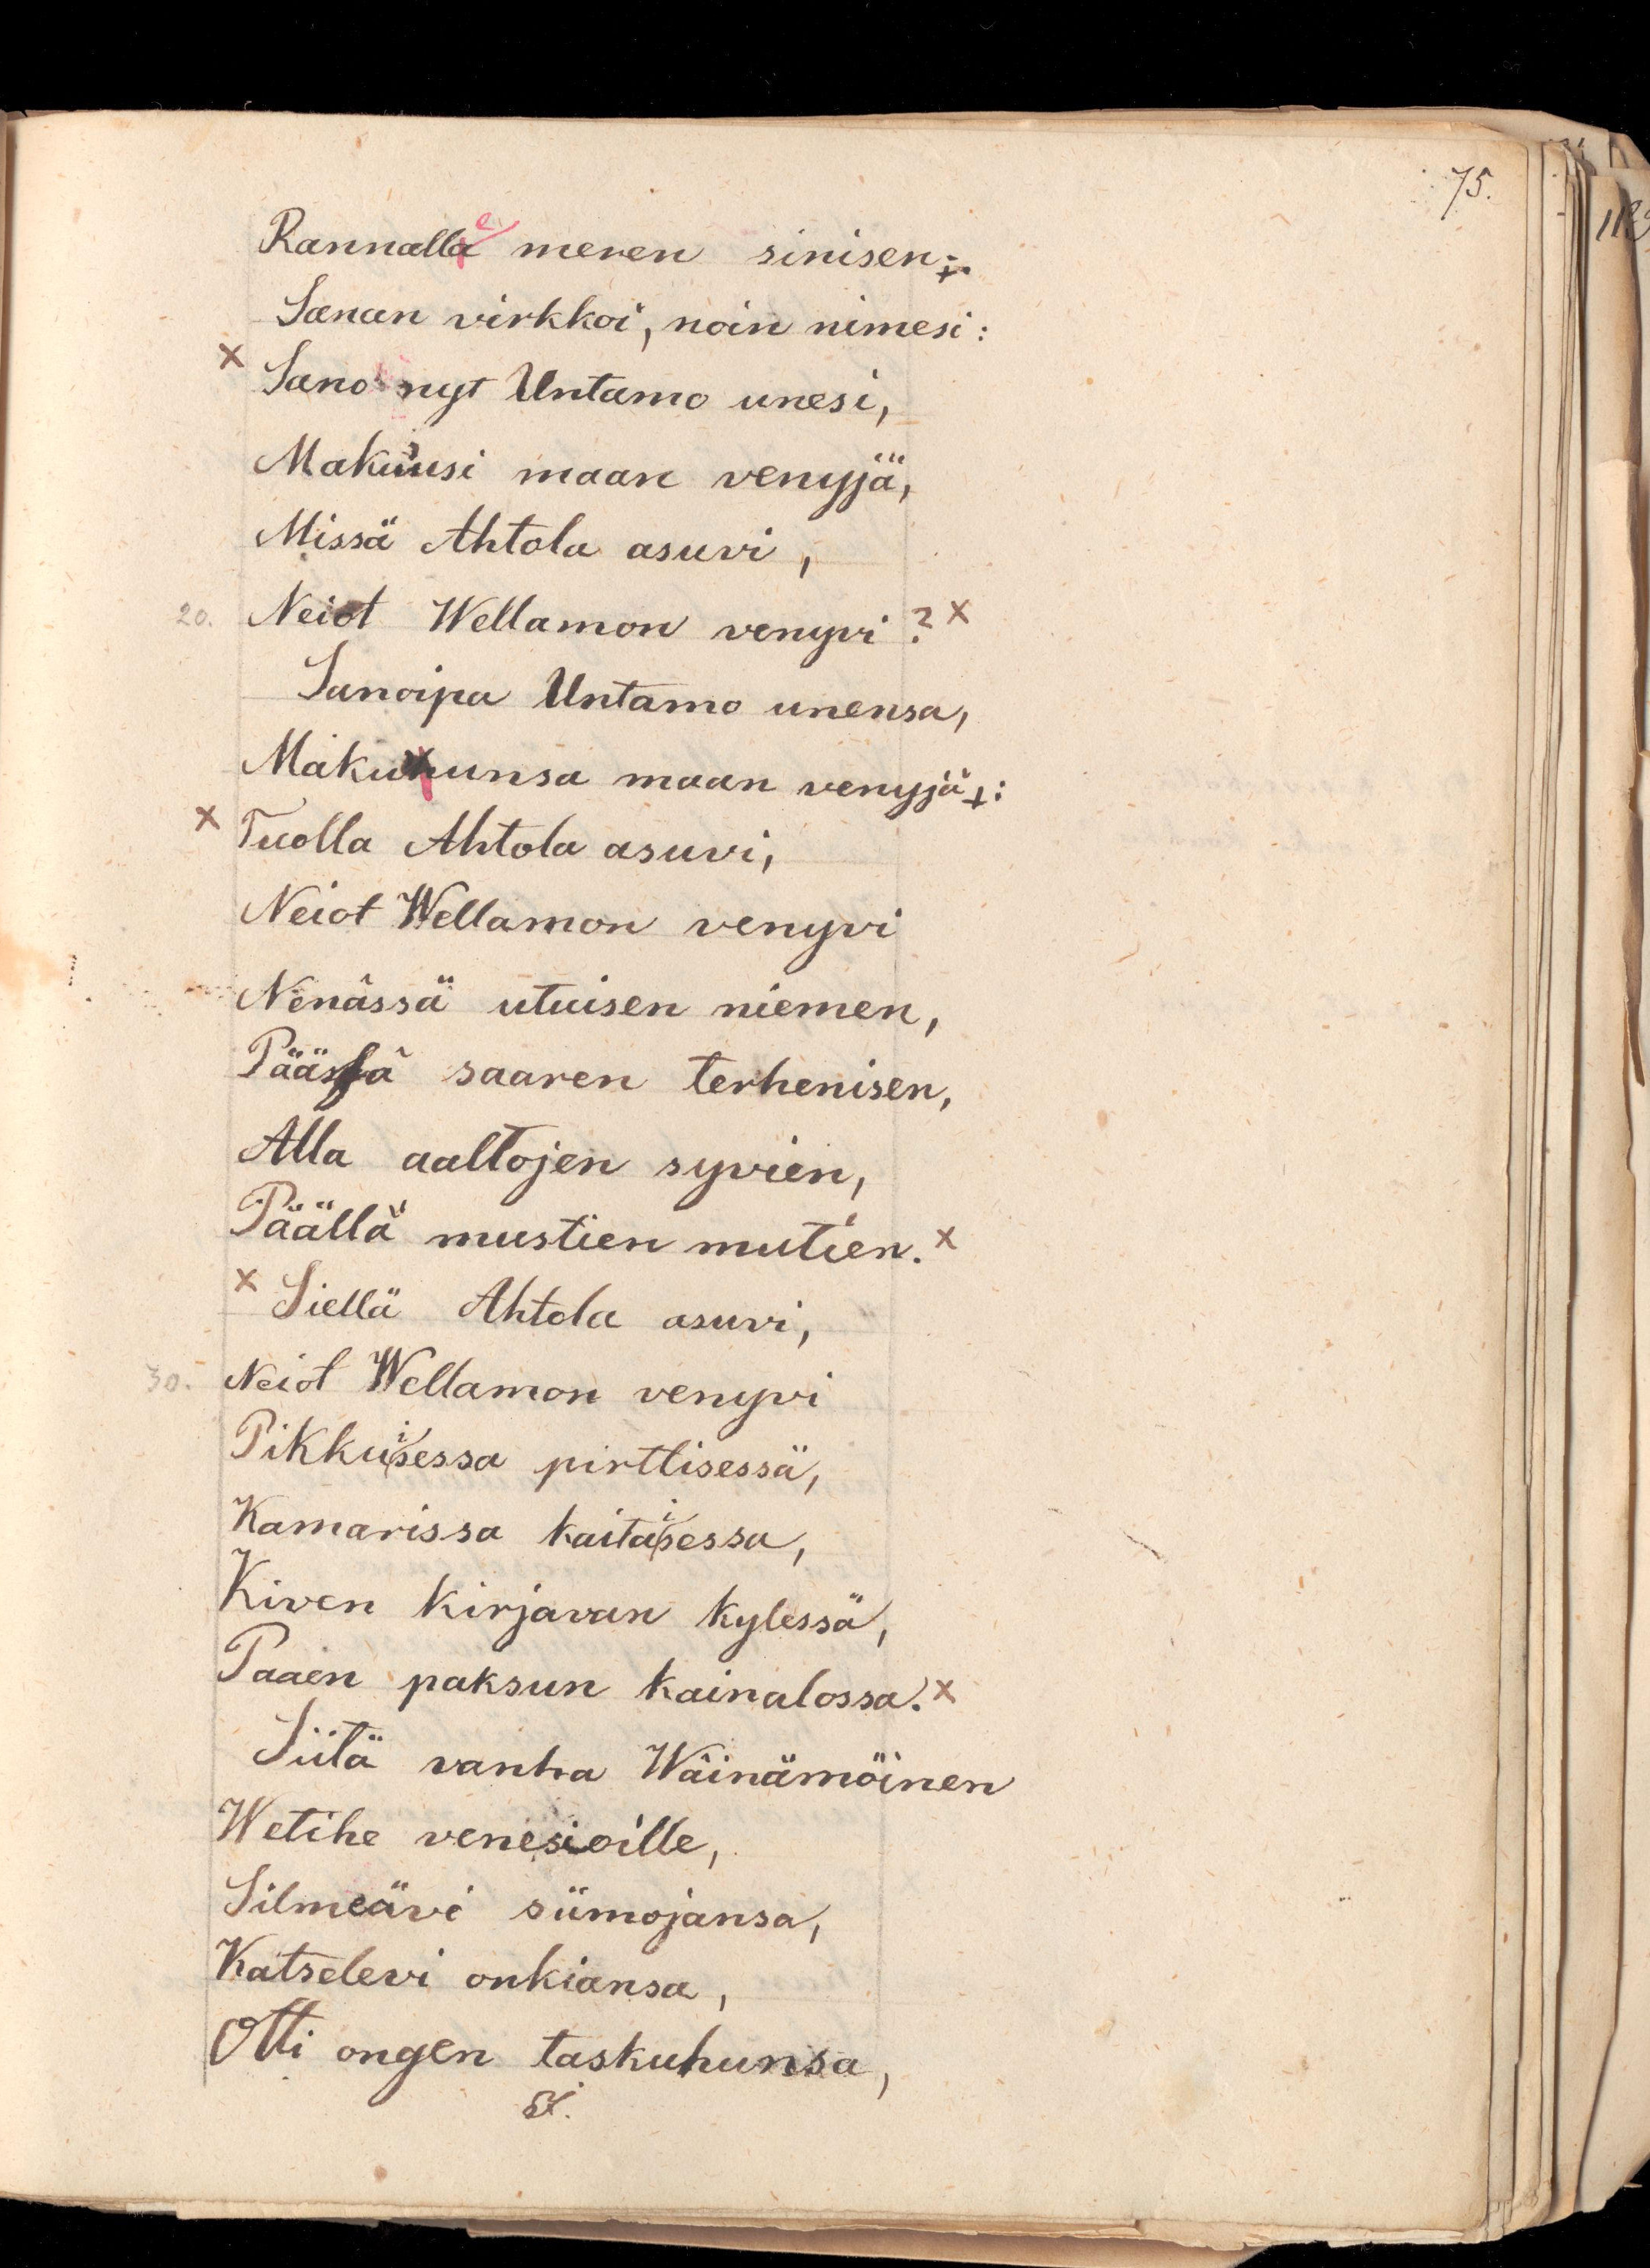 75.
Rannalle meren sinisen.
Sanan virkkoi, noin nimesi:
x Sano nyt Untamo unesi,
Makuusi maan venyjä,
Missä Ahtola asuvi,
20. Neiot Wellamon venyvi? x
Sanoipa Untamo unensa,
Makuunsa maan venyjä:
x Tuolla Ahtola asuvi,
Neiot Wellamon venyvi
Nenässä utuisen niemen,
Päässä saaren terhenisen,
Alla aaltojen syvien,
Päällä mustien mutien. x
x Siellä Ahtola asuvi,
30. Neiot Wellamon venyvi
Pikkuisessa pirttisessä,
Kamarissa kaitaisessa,
Kiven kirjavan kylessä,
Paaen paksun kainalossa. x
Siitä vanha Wäinämöinen
Wetihe venesioille,
Silmeävi siimojansa,
Katselevi onkiansa,
Otti ongen taskuhunsa,